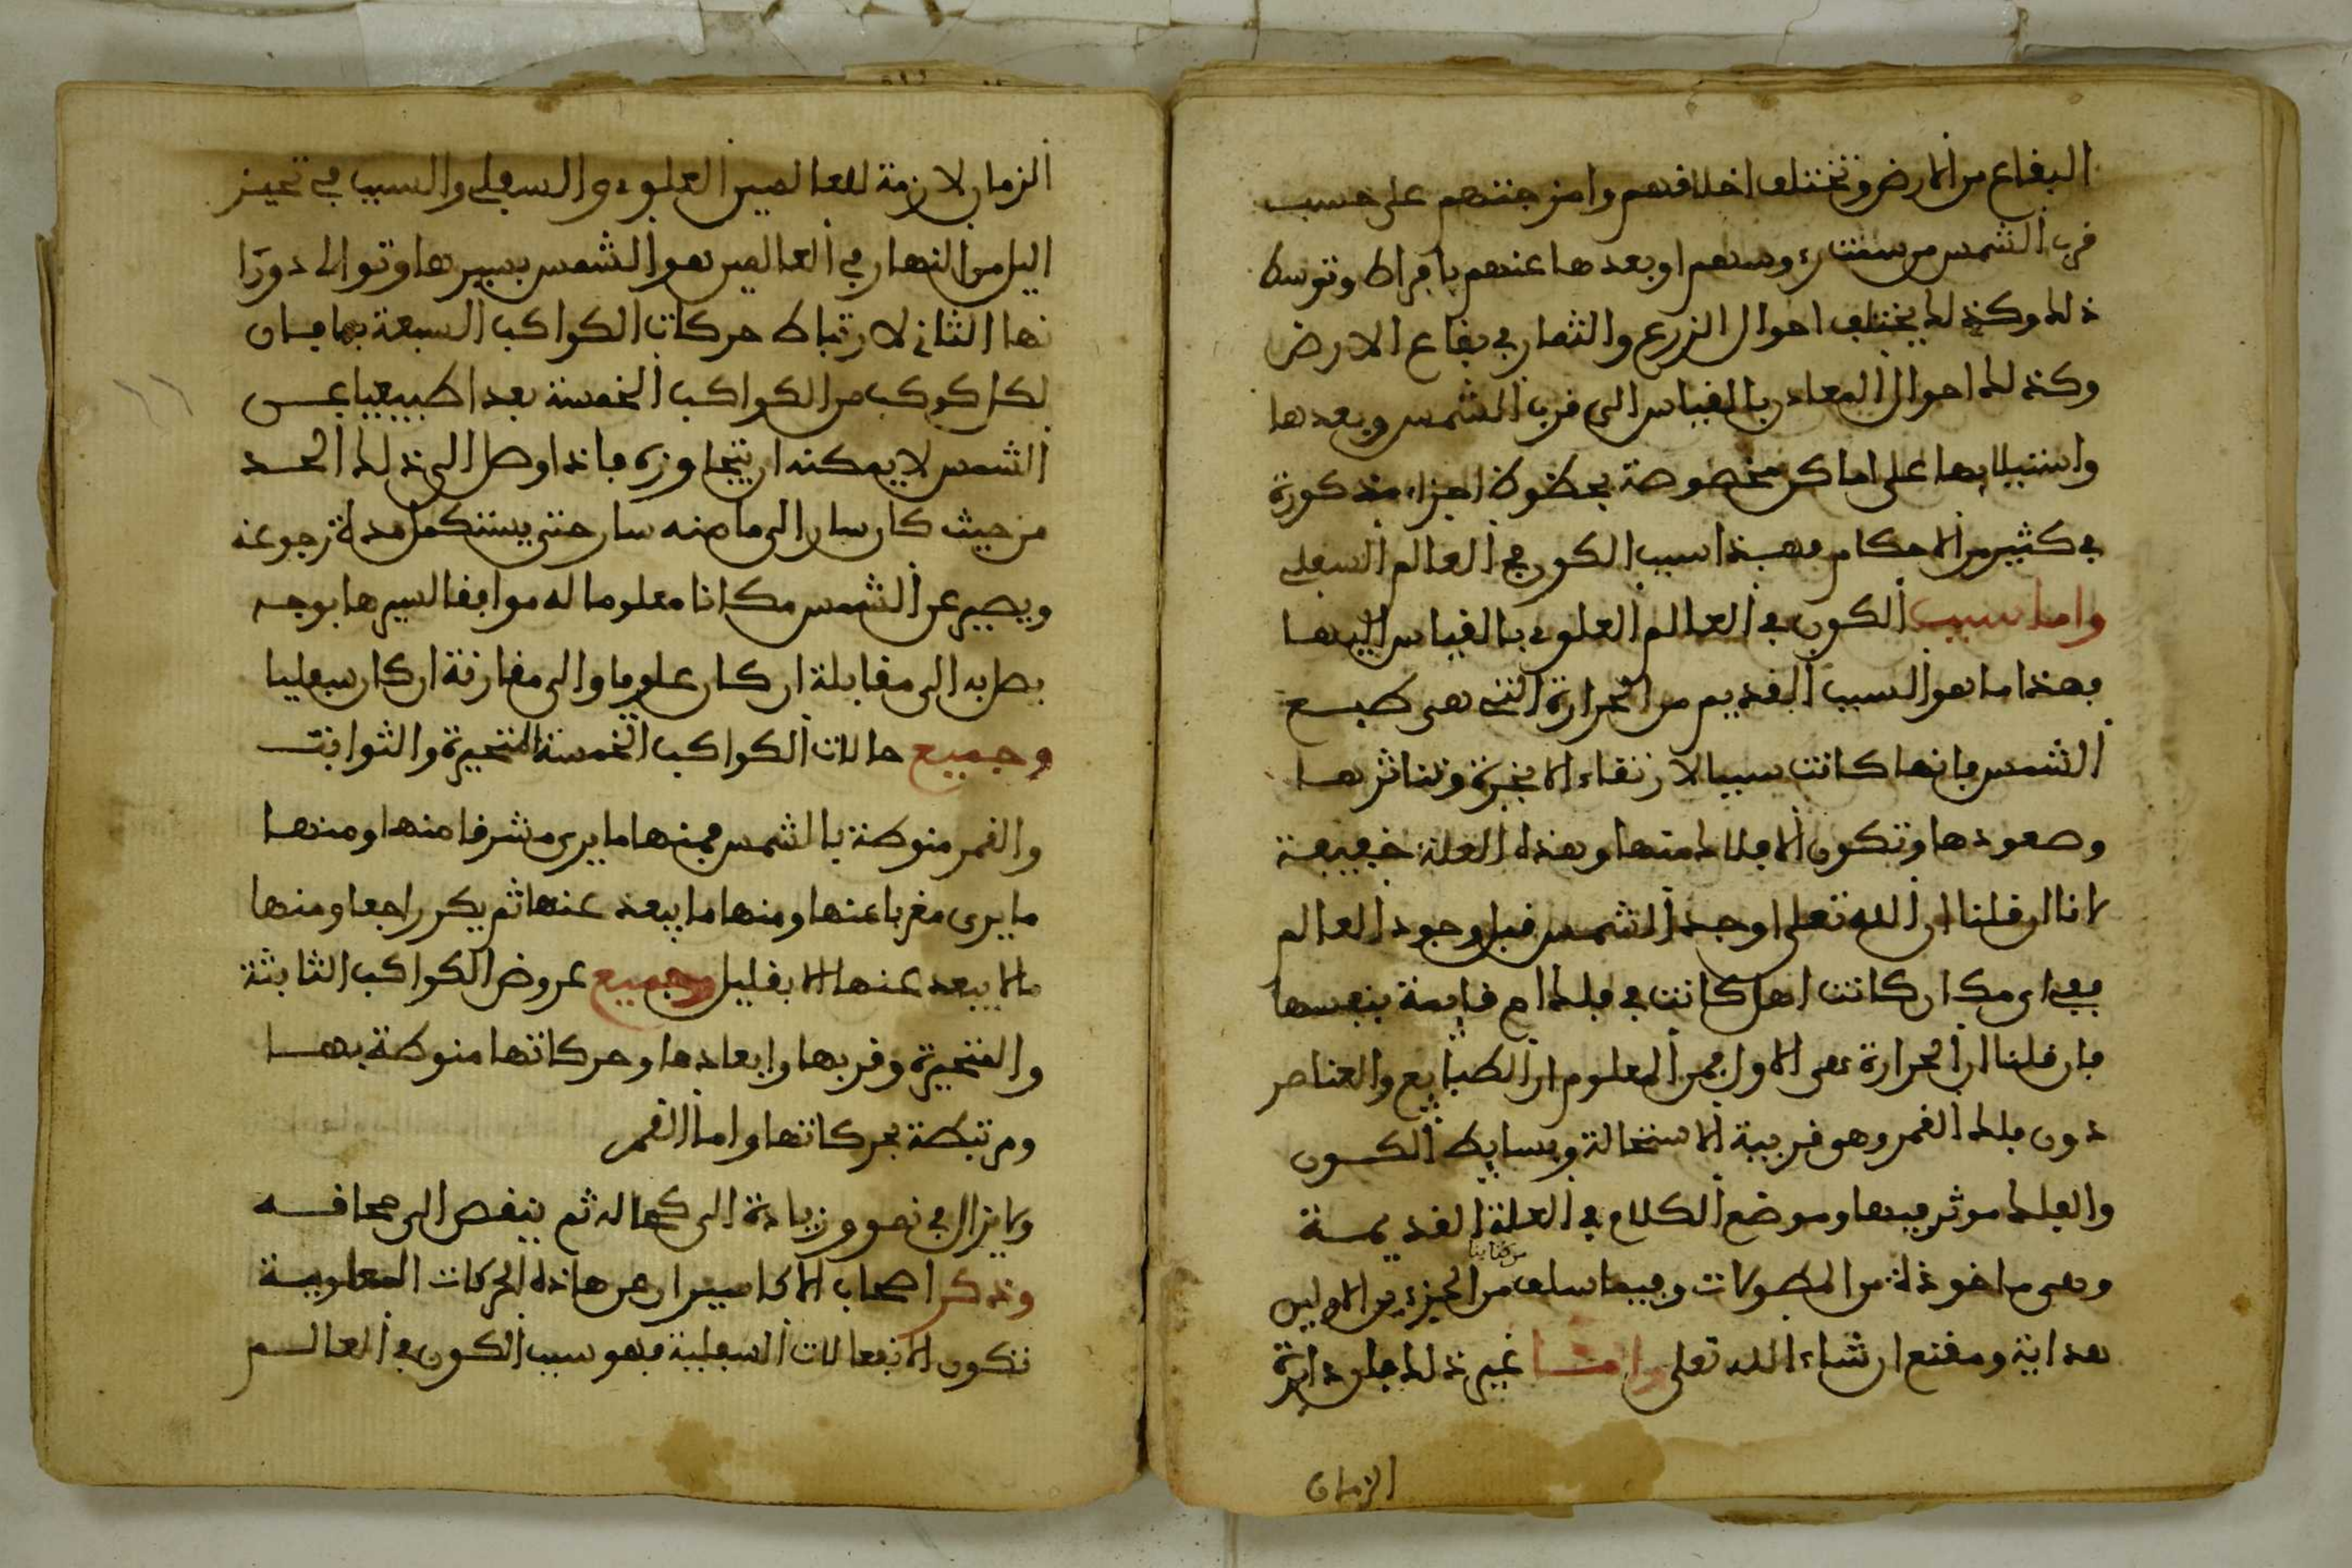 البفاع من الارض وتختلف اخلافهم وامزجتهم على حسب
فرب الشمس من سمت رءوسهم او بعدها عنهم بافراط وتوسط
ذلك وكذلك يختلف احوال الزرع والثمار في بفاع الارض
وكذلك احوال المعادن بالفياس الى فرب الشمس وبعدها
واستيلايها على اماكن مخصوصة بحظوظ اجزاء مذكورة
في كثير من الاحكام فهذا سبب الكون في العالم السفلي
واما سبب الكون في العالم العلوي بالفياس اليها
فهذا ما هو السبب الفديم من الحرارة التي هي طبع
الشمس فانها كانت سببا لارتفاء الابخرة وتناثرها
وصعودها وتكون الافلاك منها وهذه العلة خفيفة
لانا ان فلنا ان الله تعلى اوجد الشمس فبل وجود العالم
ففي اي مكان كانت اهل كانت في فلك ام فايمة بنفسها
فان فلنا ان الحرارة هي الاول فمن المعلوم ان الطبايع والعناصر
دون فلك الفمر وهو فريبة الاستحالة وبسايط الكون
والفلك موثر فيها وموضع الكلام في العلة الفديمة
وهي ماخوذة من المطولات وفيما سلف من الجزءين الاولين
من كتابنا
هداية ومفنع ان شاء الله تعلى وانما غير ذلك فلان دايرة
الزمان
الزمان لازمة للعالمين العلوي والسفلي والسبب في تمييز
اليل من النهار في العالمين هو الشمس بسيرها وتوالى دورا
نها الثاني لارتباط حركات الكواكب السبعة بها فان
لكل كوكب من الكواكب الخمسة بعدا طبيعيا عن
الشمس لا يمكنه ان يتجاوزه فاذا وصل الى ذلك الحد
من حيث كان سار الى ما منه سار حتى يستكمل مدة رجوعه
ويصير عن الشمس مكانا معلوما له موافقا لسيرها بوجه
يصل به الى مفابلة ان كان علويا والى مفارنة ان كان سفليا
وجميع حالات الكواكب الخمسة المتحيرة والثوابت
والفمر منوطة بالشمس فمنها ما يرى مشرفا منها ومنها
ما يرى مغربا عنها ومنها ما يبعد عنها ثم يكر راجعا ومنها
ما لا يبعد عنها الا بفليل وجميع عروض الكواكب الثابثة
والمتحيرة وفربها وابعادها وحركاتها منوطة بها
ومرتبطة بحركاتها واما الفمر
ولا يزال في نمو وزيادة الى كماله ثم ينفص الى محافه
وتذكر اصحاب الاكاسير ان عن هاذه الحركات العلوية
تتكون الانفعالات السفلية فهو سبب الكون في العالم